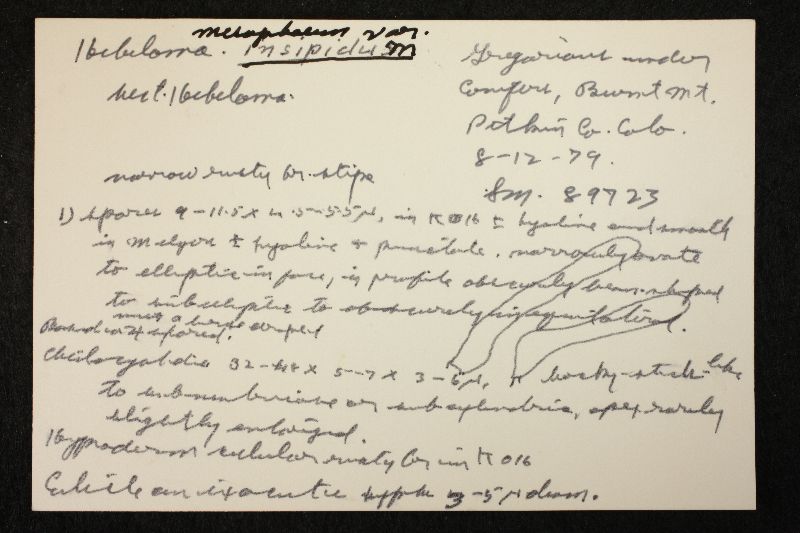 mesophaeum var.
Hebeloma. insipidum
sect. Hebeloma.
Gregarious under
Conifers, Burnt Mt.
Pitkin Co. Colo.
8-12-79.
Sm. 89723
narrow rusty br. stipe
1) spores 9-11.5 x 4.5-5.5 µ, in KOH ± hyaline and smooth
in Melzers ± hyaline + punctate. narrowly ovate
to elliptic in face, in profile obscurely bean-shaped
to subelliptic to obscurely inequilateral.
Basidia 4 spored.
Cheilocystidia 32-48 x 5-7 x 3-6 µ, hocky-stick-like
to sub-ventricose or subcylindric, apex rarely
slightly enlarged.
Hypoderm cellular rusty br in KOH
Cuticle an ixocutis hyphae 3-5 µ diam.